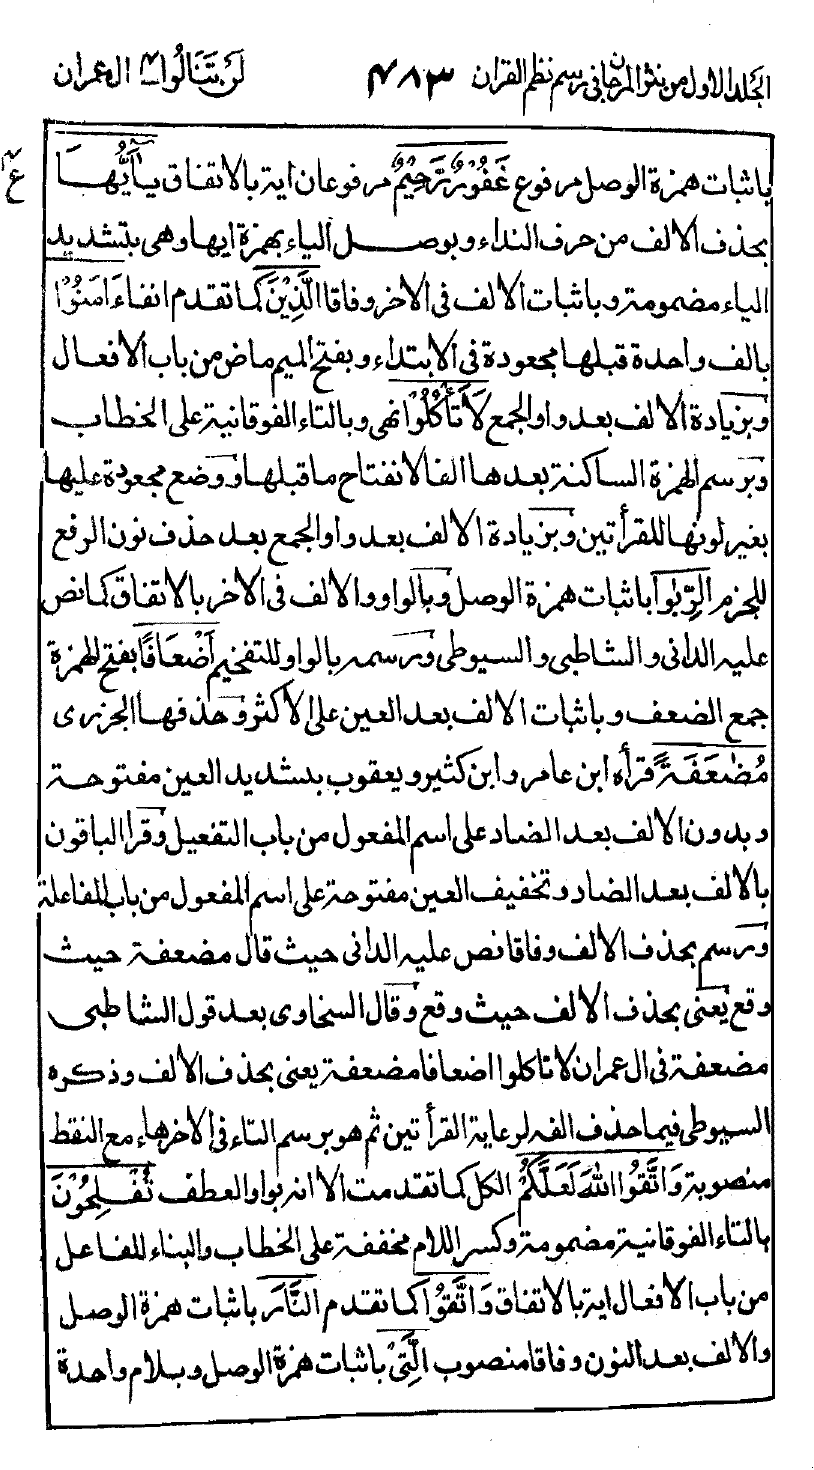 الجلد الاول من نثر المرجان فی رسم نظم القران ۴۸۳ لَنْ تَنَالُوا ۴ ال عمران
باثبات همزة الوصل مرفوع غَفُوْرٌ رَّحِيْمٌ مرفوعان اية بالاتفاق يٰٓاَيُّهَا
ع
بحذف الالف من حرف النداء وبوصل الياء بهمزة ايها وهی بتشديد
الياء مضمومة وباثبات الالف فی الاخر وفاقا الَّذِيْنَ كما تقدم انفاء اٰمَنُوْا
بالف واحدة قبلها مجعودة فی الابتداء وبفتح الميم ماض من باب الافعال
وبزيادة الالف بعد واو الجمع لَا تَأْكُلُوْا نهی وبالتاء الفوقانية علی الخطاب
وبرسم الهمزة الساكنة بعدها الفا لانفتاح ما قبلها ووضع مجعودة عليها
بغير لونها للقرأتين وبزيادة الالف بعد واو الجمع بعد حذف نون الرفع
للجزم الرِّبٰوا باثبات همزة الوصل وبالواو والالف فی الاخر بالاتفاق كما نص
عليه الدانی والشاطبی والسيوطی ورسمه بالواو للتفخيم اَضْعَافًا بفتح الهمزة
جمع الضعف وباثبات الالف بعد العين علی الاكثر وحذفها الجزری
مُضٰعَفَةً قرأه ابن عامر وابن كثير ويعقوب بتشديد العين مفتوحة
وبدون الالف بعد الضاد علی اسم المفعول من باب التفعيل وقرا الباقون
بالالف بعد الضاد وتخفيف العين مفتوحة علی اسم المفعول من باب المفاعلة
ورسم بحذف الالف وفاقا نص عليه الدانی حيث قال مضعفة حيث
وقع يعنی بحذف الالف حيث وقع وقال السخاوی بعد قول الشاطبی
مضعفة فی ال عمران لا تاكلوا اضعافا مضعفة يعنی بحذف الالف وذكره
السيوطی فيما حذف الفه لرعاية القرأتين ثم هو برسم التاء فی الاخرهاء مع النقط
منصوبة وَاتَّقُوا اللّٰهَ لَعَلَّكُمْ الكل كما تقدمت الا انه بواو العطف تُفْلِحُوْنَ
بالتاء الفوقانية مضمومة وكسر اللام مخففة علی الخطاب والبناء للفاعل
من باب الافعال اية بالاتفاق وَاتَّقُوْا كما تقدم النَّارَ باثبات همزة الوصل
والالف بعد النون وفاقا منصوب الَّتِیْ باثبات همزة الوصل وبلام واحدة